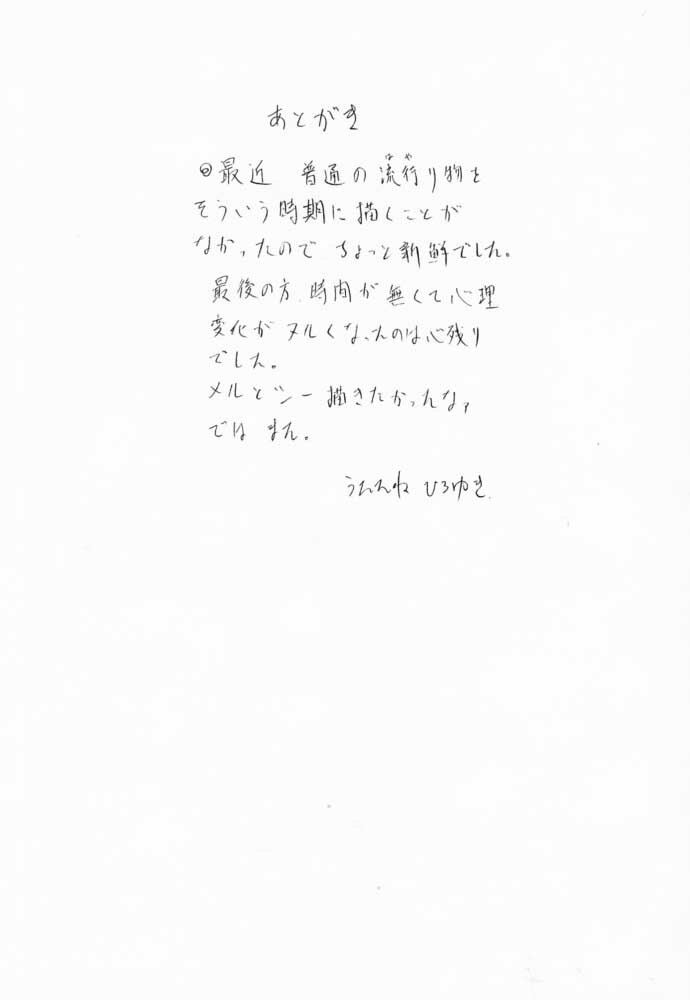 あとがき
◎最近 普通の流行り物を
そういう時期に描くことが
なかったので ちょっと新鮮でした。
最後の方、時間が無くて心理
変化がヌルくなったのは心残り
でした。
メルとツー描きたかったなァ
では また。
うたたね ひろゆき